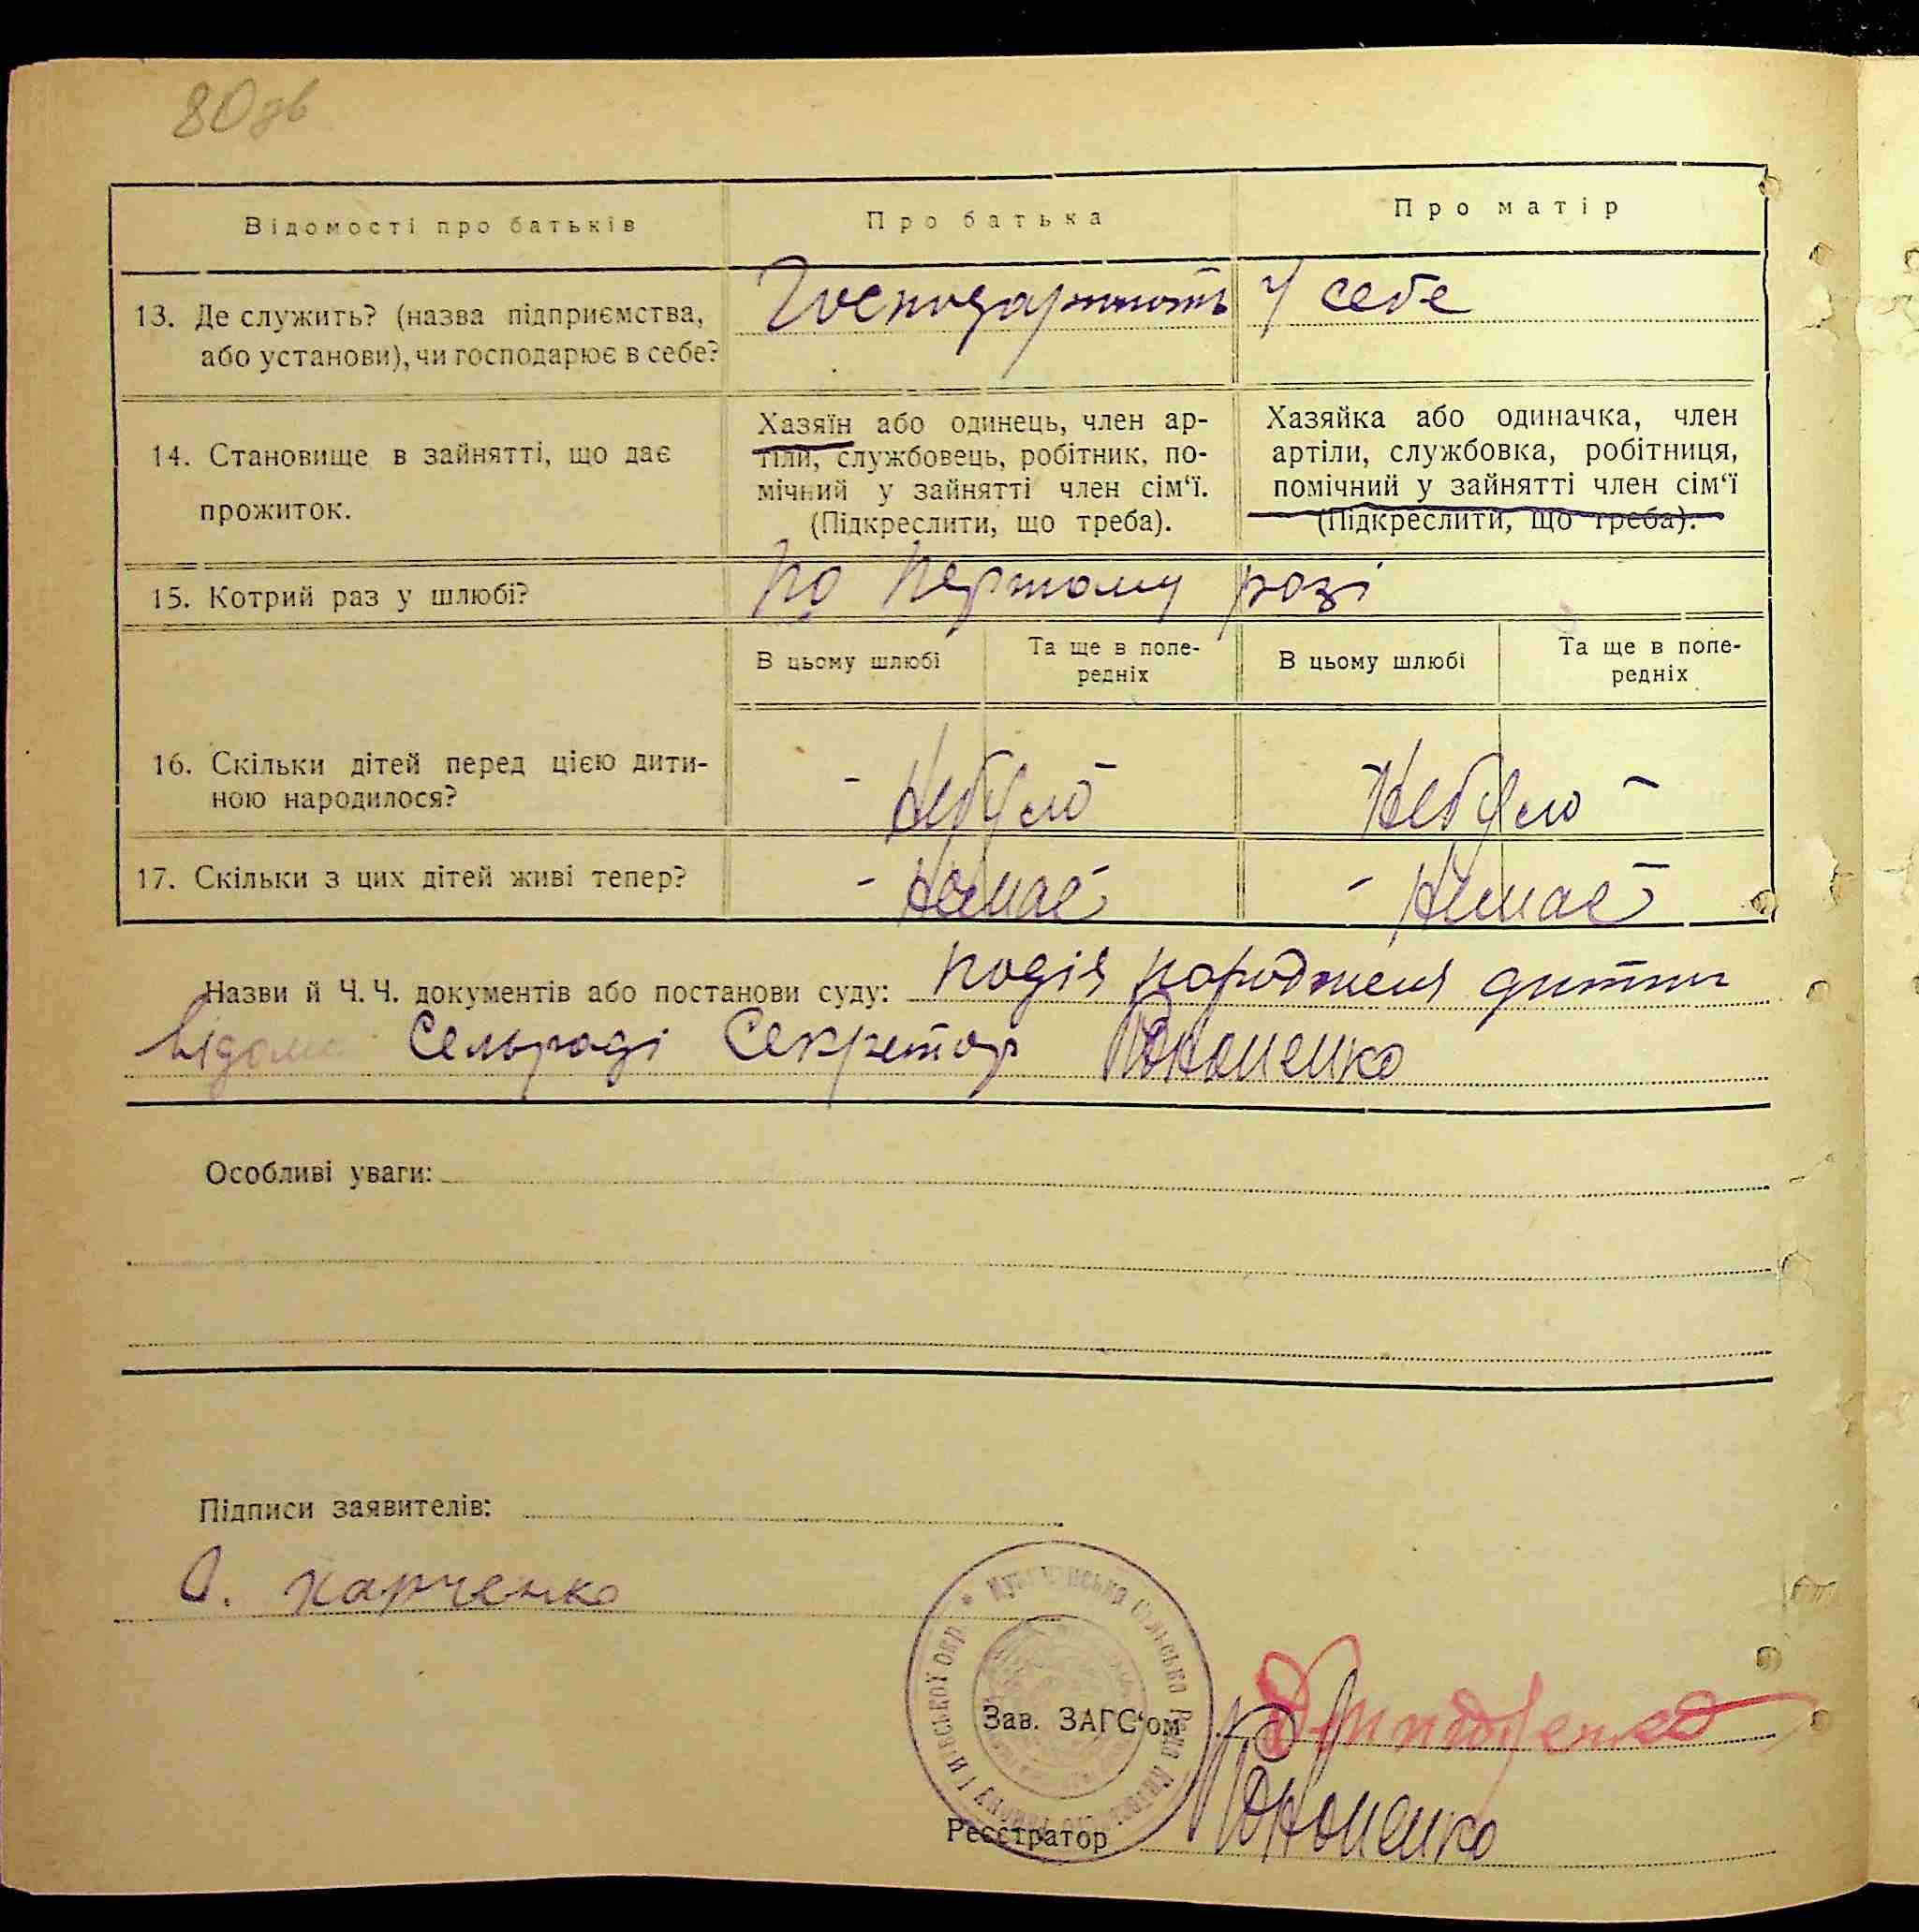 80зв
Відомості про батьків
Про батька
Про матір
13. Де служить? (назва підприємства,
або установи), чи господарює в себе?
Господарюють у себе
14. Становище в зайнятті, що дає
прожиток.
Хазяїн або одинець, член ар-
тіли, службовець, робітник, по-
мічний у зайнятті член сім‘ї.
(Підкреслити, що треба).
Хазяйка або одиначка, член
артіли, службовка, робітниця,
помічний у зайнятті член сім‘ї
(Підкреслити, що треба).
15. Котрий раз у шлюбі?
по першому разі
В цьому шлюбі
Та ще в попе-
редніх
В цьому шлюбі
Та ще в попе-
редніх
16. Скільки дітей перед цією дити-
ною народилося?
- Небуло -
Небуло -
17. Скільки з цих дітей живі тепер?
- Немає -
- Немає -
Назви й Ч. Ч. документів або постанови суду: подія народженя дитини
відома Сельраді Секретар
Особливі уваги:
Підписи заявителів:
О. Харченко
сільська Рада
Зав. ЗАГС‘ом
Реєстратор